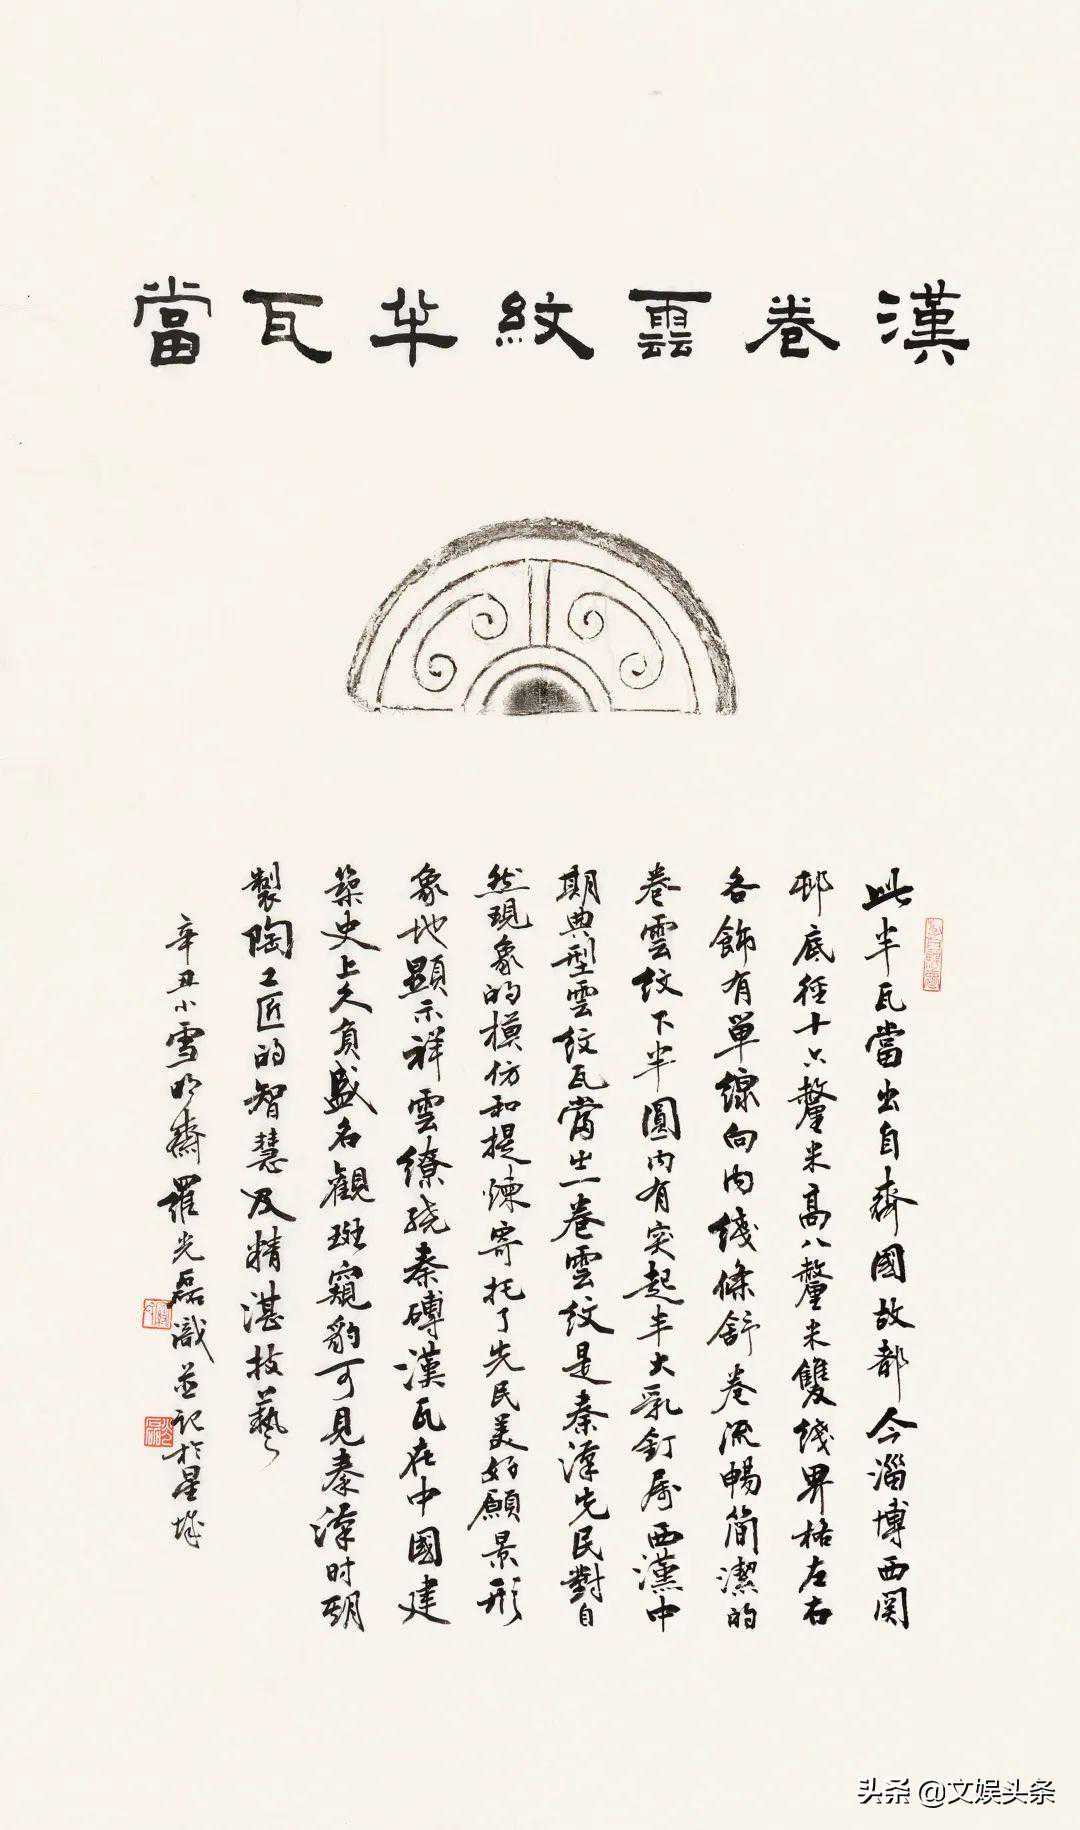 漢卷雲紋半瓦當
此半瓦當出自齊國故都今淄博西関
邨底徑十六釐米高八釐米雙綫界格左右
各飾有單線向内綫條舒卷流暢简潔的
卷雲紋下半圓内有突起半大乳釘属西漢中
期典型雲紋瓦當之一卷雲紋是秦漢先民對自
然現象的模仿和提煉寄托了先民美好願景形
象地顯示祥雲繚繞秦磚漢瓦在中國建
築史上久負盛名觀斑窺豹可見秦漢时期
製陶工匠的智慧及精湛技藝
辛丑小雪明齋羅光磊識並記於星城
头条 @文娱头条